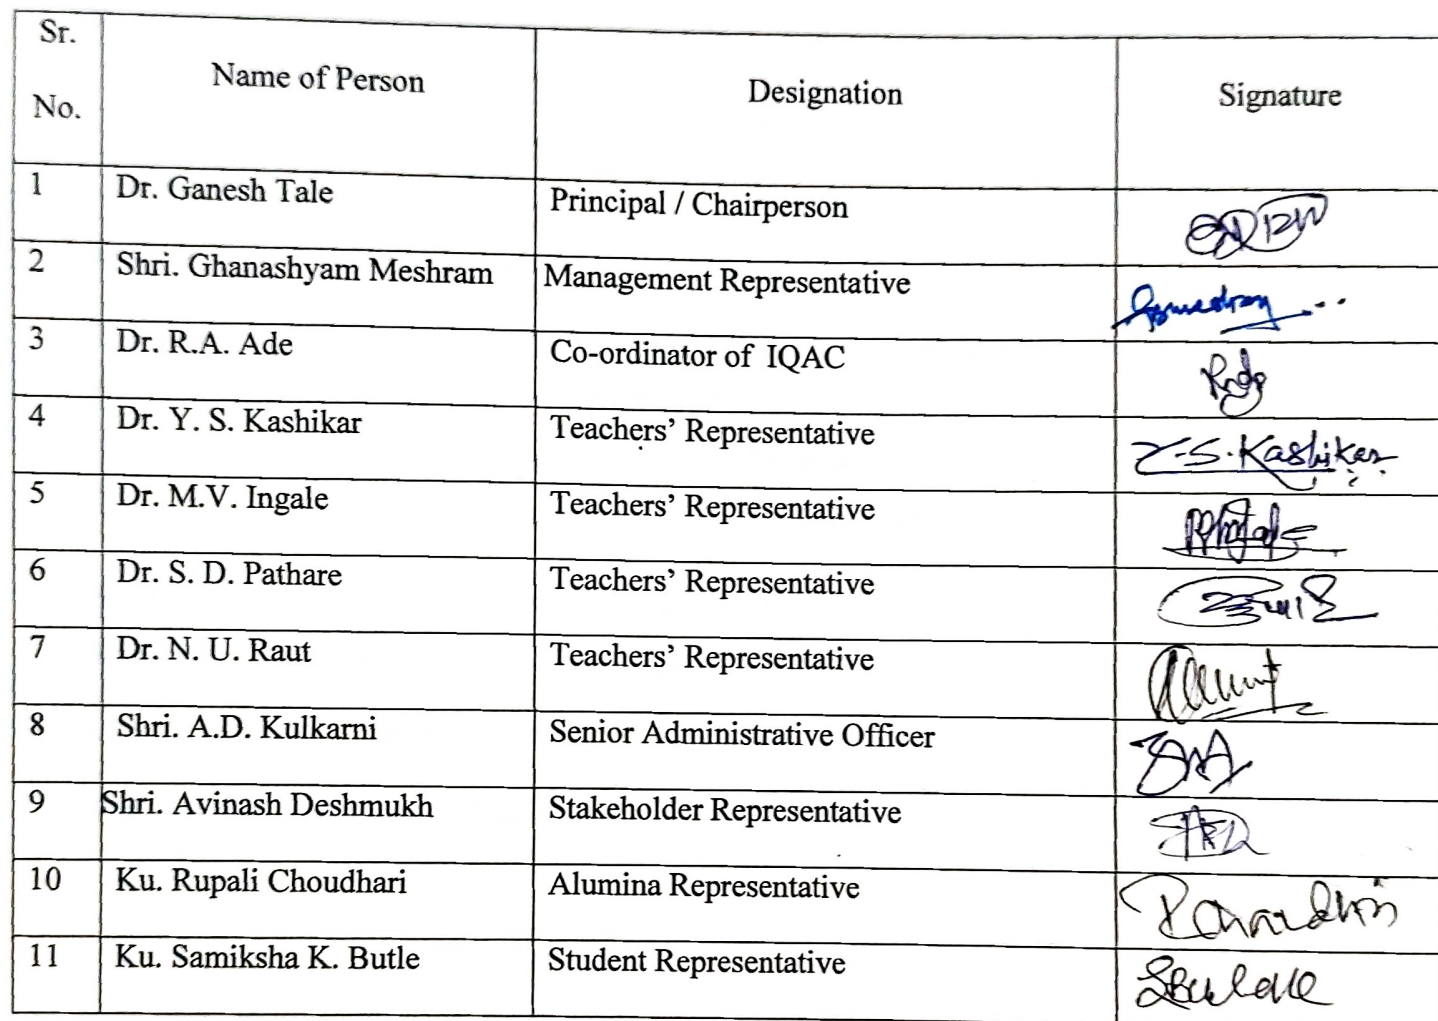 Sr.
No.
Name of Person
Designation
Signature
1 Dr. Ganesh Tale Principal / Chairperson
2 Shri. Ghanashyam Meshram Management Representative
3 Dr. R.A. Ade Co-ordinator of IQAC
4 Dr. Y. S. Kashikar Teachers’ Representative Y.S. Kashikar
5 Dr. M.V. Ingale Teachers’ Representative
6 Dr. S. D. Pathare Teachers’ Representative
7 Dr. N. U. Raut Teachers’ Representative
8 Shri. A.D. Kulkarni Senior Administrative Officer
9 Shri. Avinash Deshmukh Stakeholder Representative
10 Ku. Rupali Choudhari Alumina Representative
11 Ku. Samiksha K. Butle Student Representative